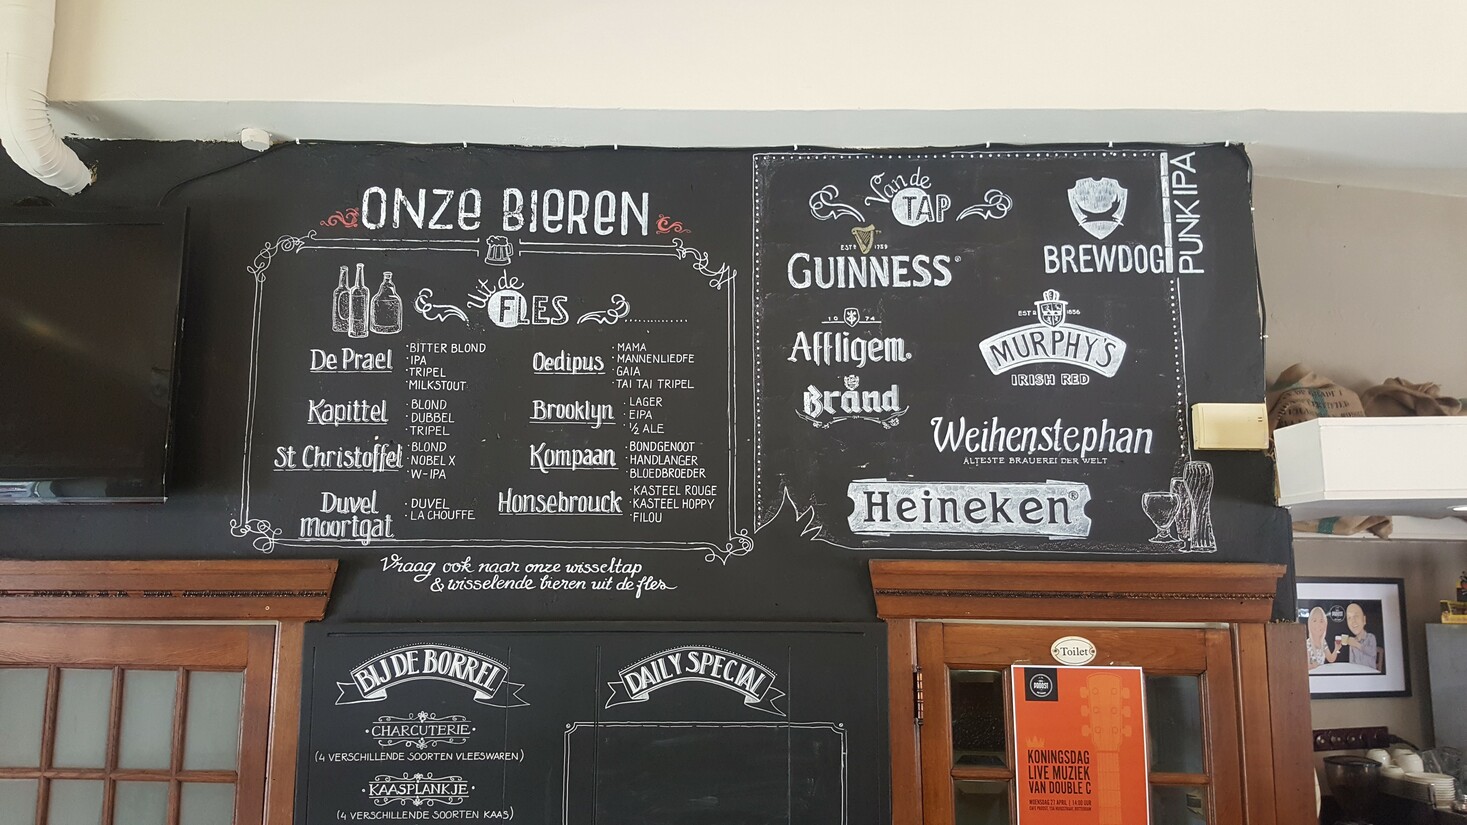 ONZE BIEREN
Uit de
FLES
De Prael
·BITTER BLOND
·IPA
·TRIPEL
·MILKSTOUT
Kapittel
·BLOND
·DUBBEL
·TRIPEL
St Christoffel
·BLOND
·NOBEL X
·W-IPA
Duvel
Moortgat
·DUVEL
·LA CHOUFFE
Oedipus
·MAMA
·MANNENLIEDFE
·GAIA
·TAI TAI TRIPEL
Brooklyn
·LAGER
·EIPA
·½ ALE
Kompaan
·BONDGENOOT
·HANDLANGER
·BLOEDBROEDER
Honsebrouck
·KASTEEL ROUGE
·KASTEEL HOPPY
·FILOU
Vraag ook naar onze wisseltap
& wisselende bieren uit de fles
Van de
TAP
ESTD 1759
GUINNESS®
BREWDOG
PUNK IPA
1074
Affligem.
Brand
ESTD 1856
MURPHY'S
IRISH RED
Weihenstephan
ÄLTESTE BRAUEREI DER WELT
Heineken®
BIJ DE BORREL
·CHARCUTERIE·
(4 VERSCHILLENDE SOORTEN VLEESWAREN)
·KAASPLANKJE·
(4 VERSCHILLENDE SOORTEN KAAS)
DAILY SPECIAL
Toilet
PROOST
KONINGSDAG
LIVE MUZIEK
VAN DOUBLE C
WOENSDAG 27 APRIL | 14:00 UUR